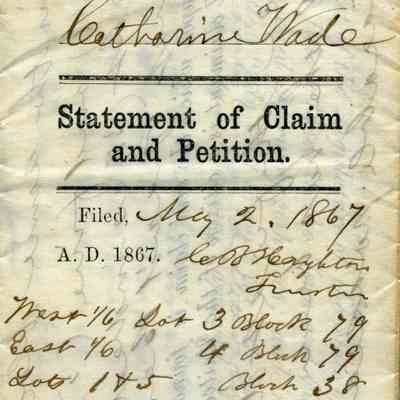 Catharine Wade
Statement of Claim
and Petition.
Filed, May 2. 1867
A. D. 1867. C B Houghton
Trustee
West 1/6 Lot 3 Block 79
East 1/6 4 Block 79
Lots 1 & 5 Block 38